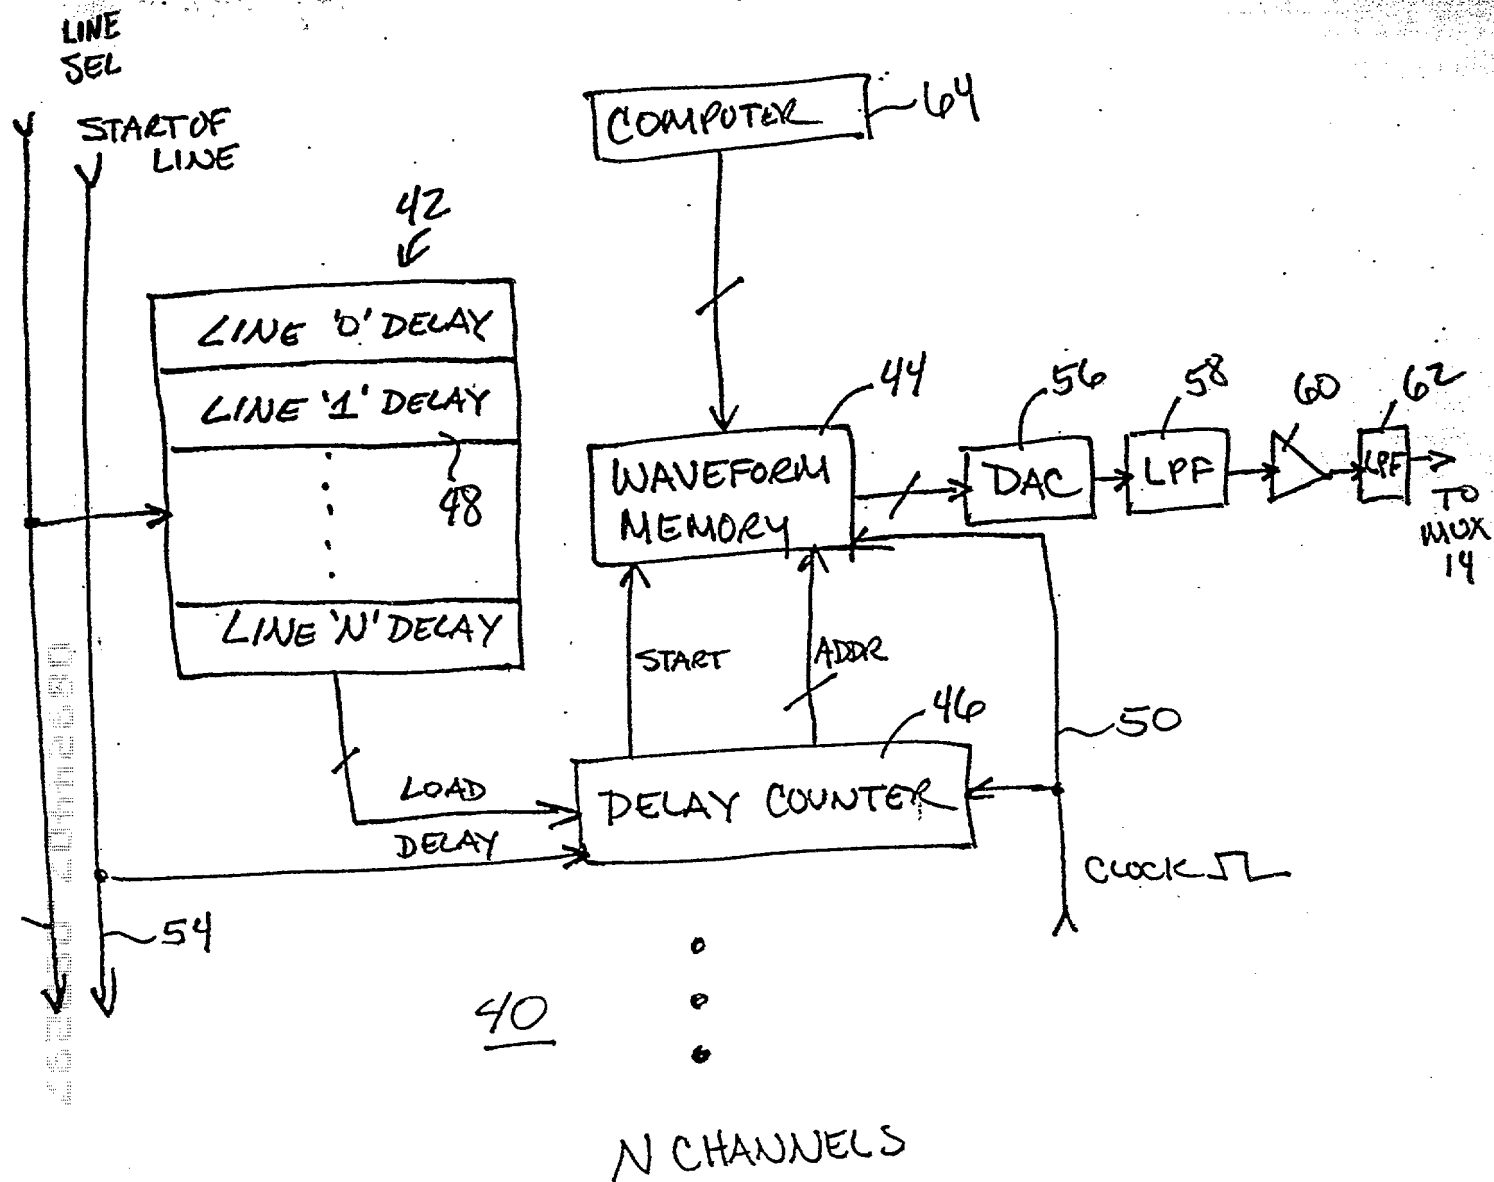 LINE
SEL
START OF
LINE
COMPUTER
64
42
LINE '0' DELAY
LINE '1' DELAY
48
LINE 'N' DELAY
44
WAVEFORM
MEMORY
56
DAC
58
LPF
60
62
LPF
TO
MUX
14
START
ADDR
46
50
LOAD
DELAY
DELAY COUNTER
CLOCK
54
40
N CHANNELS